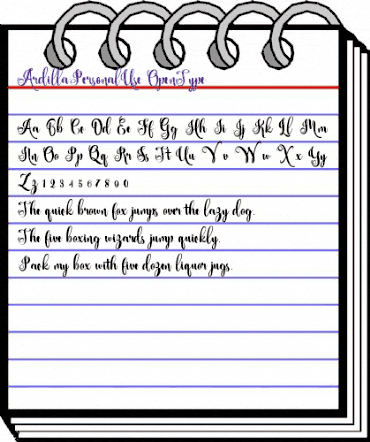 ArdillaPersonalUse OpenType
Aa Bb Cc Dd Ee Ff Gg Hh Ii Jj Kk Ll Mm
Nn Oo Pp Qq Rr Ss Tt Uu Vv Ww Xx Yy
Zz 1 2 3 4 5 6 7 8 9 0
The quick brown fox jumps over the lazy dog.
The five boxing wizards jump quickly.
Pack my box with five dozen liquor jugs.